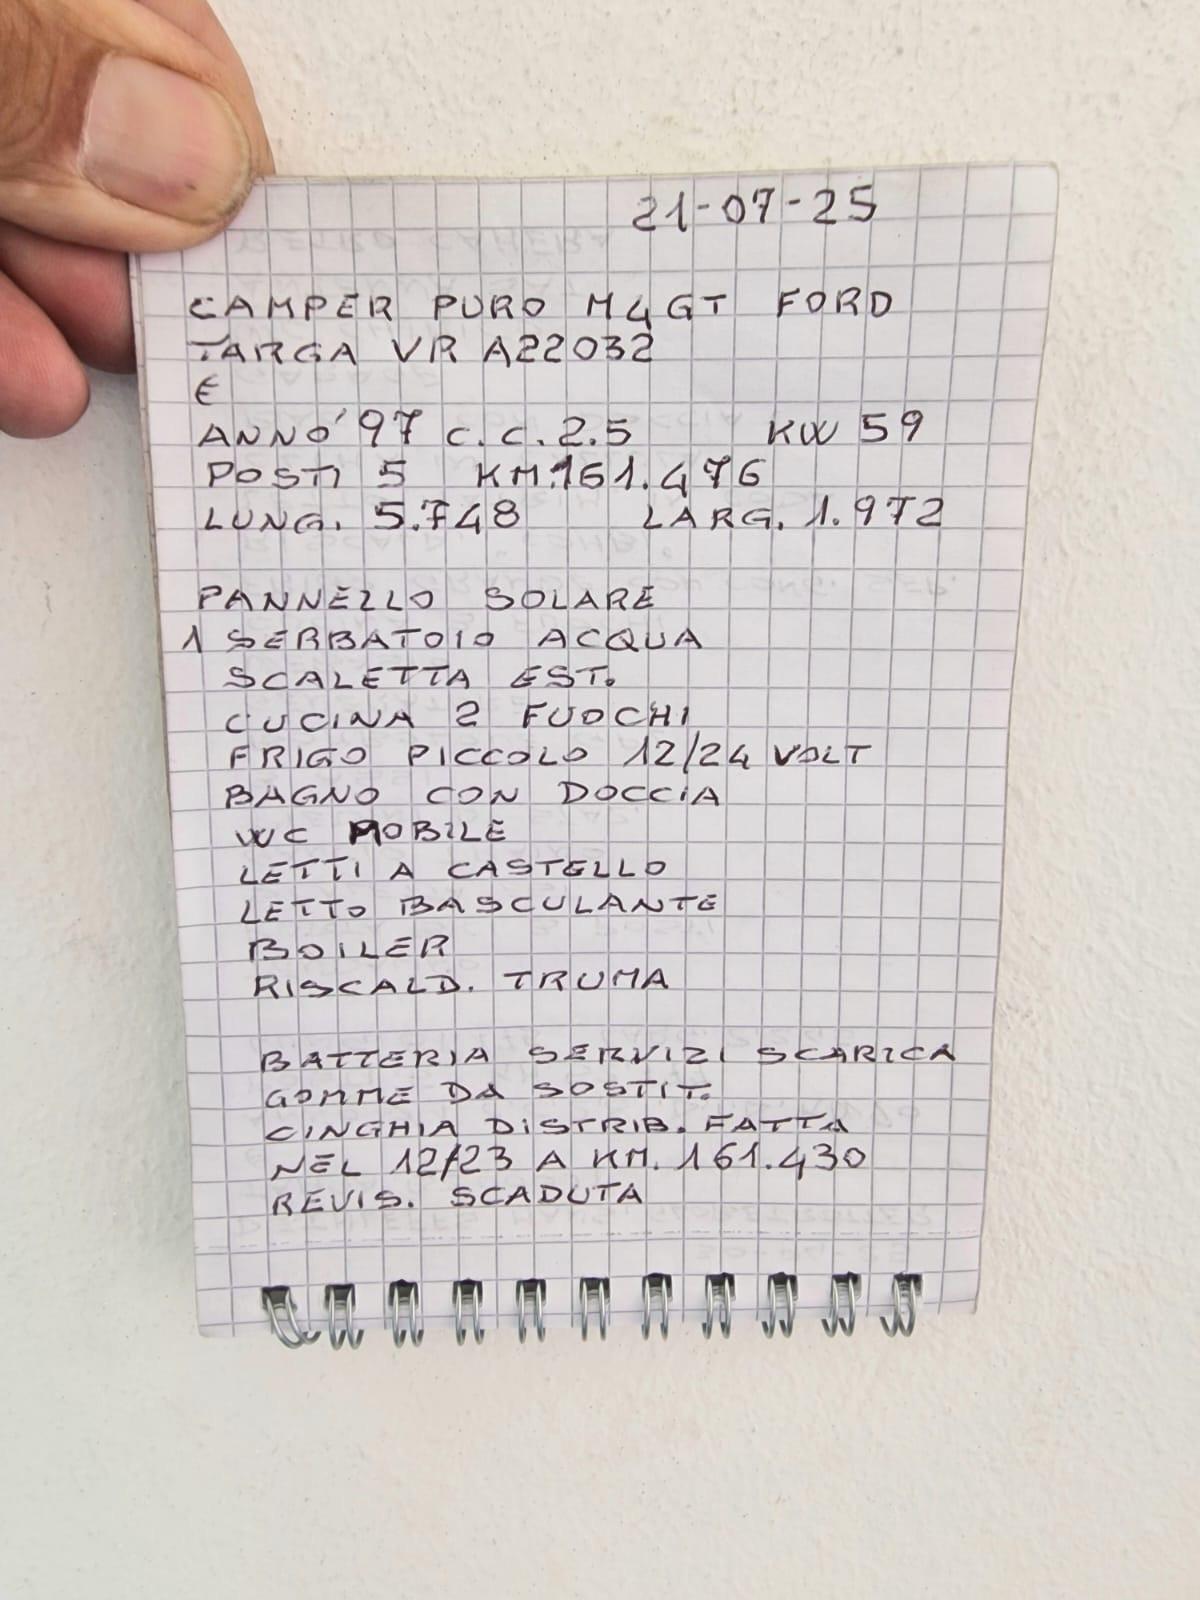 21-07-25
CAMPER PURO M4GT FORD
TARGA VR A22032
€
ANNO '97 C.C. 2.5 KW 59
POSTI 5 KM. 161.476
LUNG. 5.748 LARG. 1.972
PANNELLO SOLARE
1 SERBATOIO ACQUA
SCALETTA EST.
CUCINA 2 FUOCHI
FRIGO PICCOLO 12/24 VOLT
BAGNO CON DOCCIA
WC MOBILE
LETTI A CASTELLO
LETTO BASCULANTE
BOILER
RISCALD. TRUMA
BATTERIA SERVIZI SCARICA
GOMME DA SOSTIT.
CINGHIA DISTRIB. FATTA
NEL 12/23 A KM. 161.430
REVIS. SCADUTA